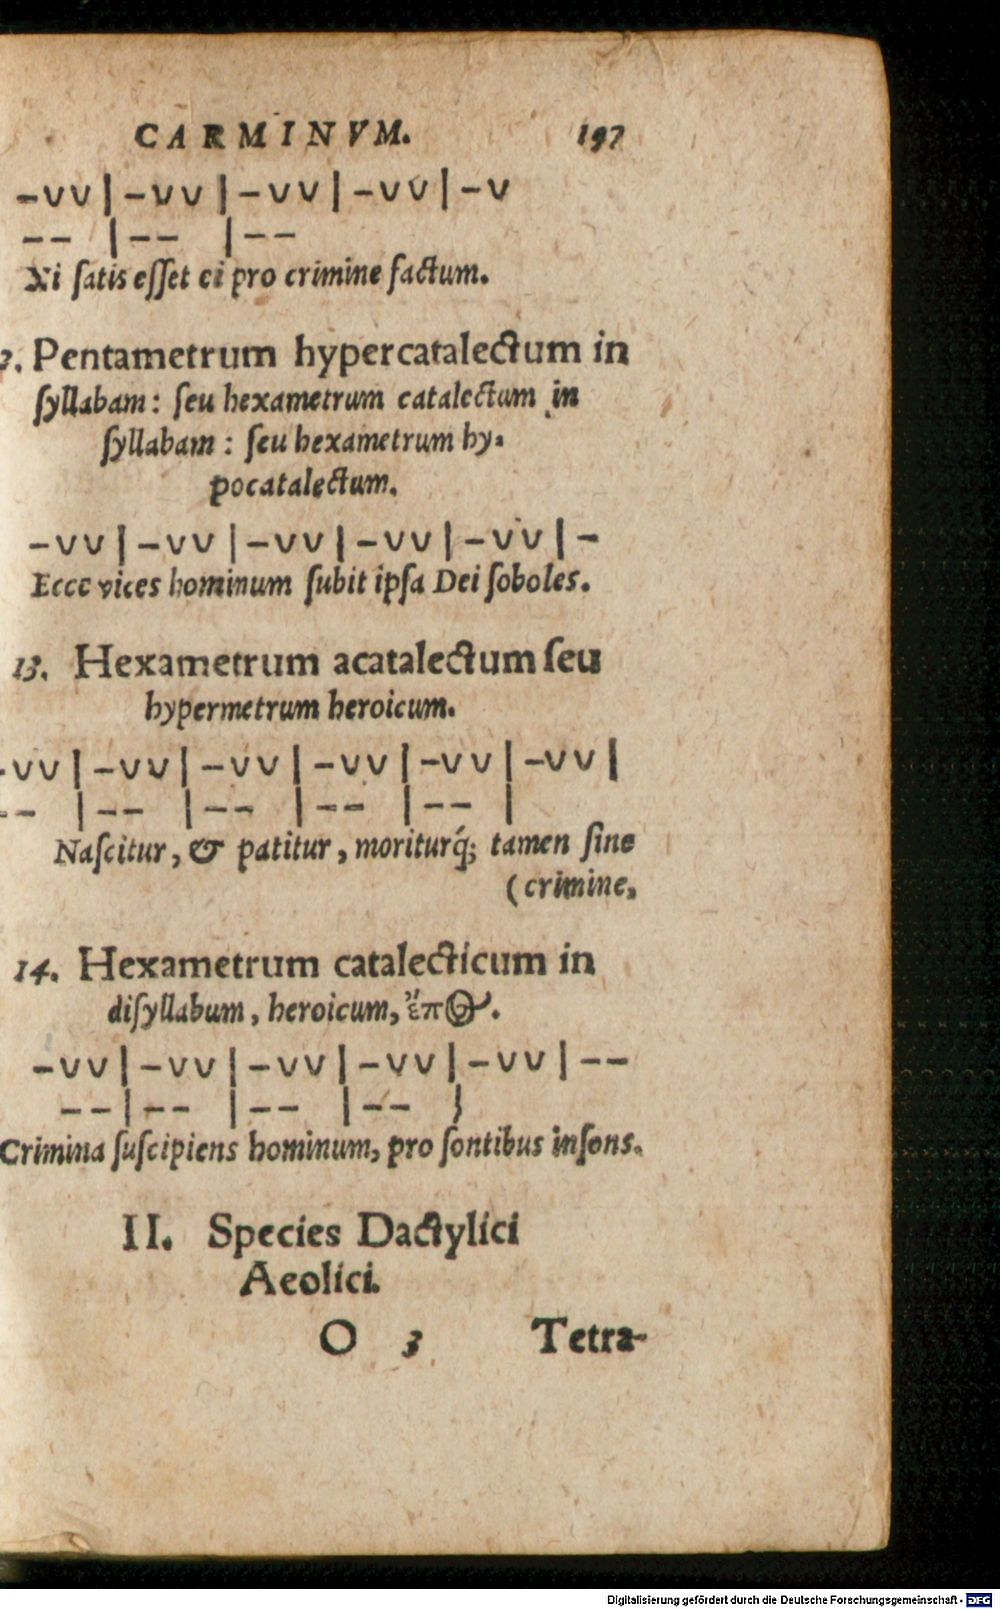 CARMINVM. 197
–vv|–vv|–vv|–vv|–v
–– |–– |––
Ni ſatis eſſet ei pro crimine factum.
2. Pentametrum hypercatalectum in
ſyllabam: ſeu hexametrum catalectum in
ſyllabam: ſeu hexametrum hy-
pocatalectum.
–vv|–vv|–vv|–vv|–vv|–
Ecce vices hominum ſubit ipſa Dei ſoboles.
13. Hexametrum acatalectum ſeu
hypermetrum heroicum.
–vv|–vv|–vv|–vv|–vv|–vv|
–– |–– |–– |–– |–– |
Naſcitur, & patitur, moriturq́; tamen ſine
(crimine,
14. Hexametrum catalecticum in
diſyllabum, heroicum, ἔπος.
–vv|–vv|–vv|–vv|–vv|––
––|–– |–– |–– |
Crimina ſuſcipiens hominum, pro ſontibus inſons.
II. Species Dactylici
Aeolici.
O 3 Tetra-
Digitalisierung gefördert durch die Deutsche Forschungsgemeinschaft - DFG